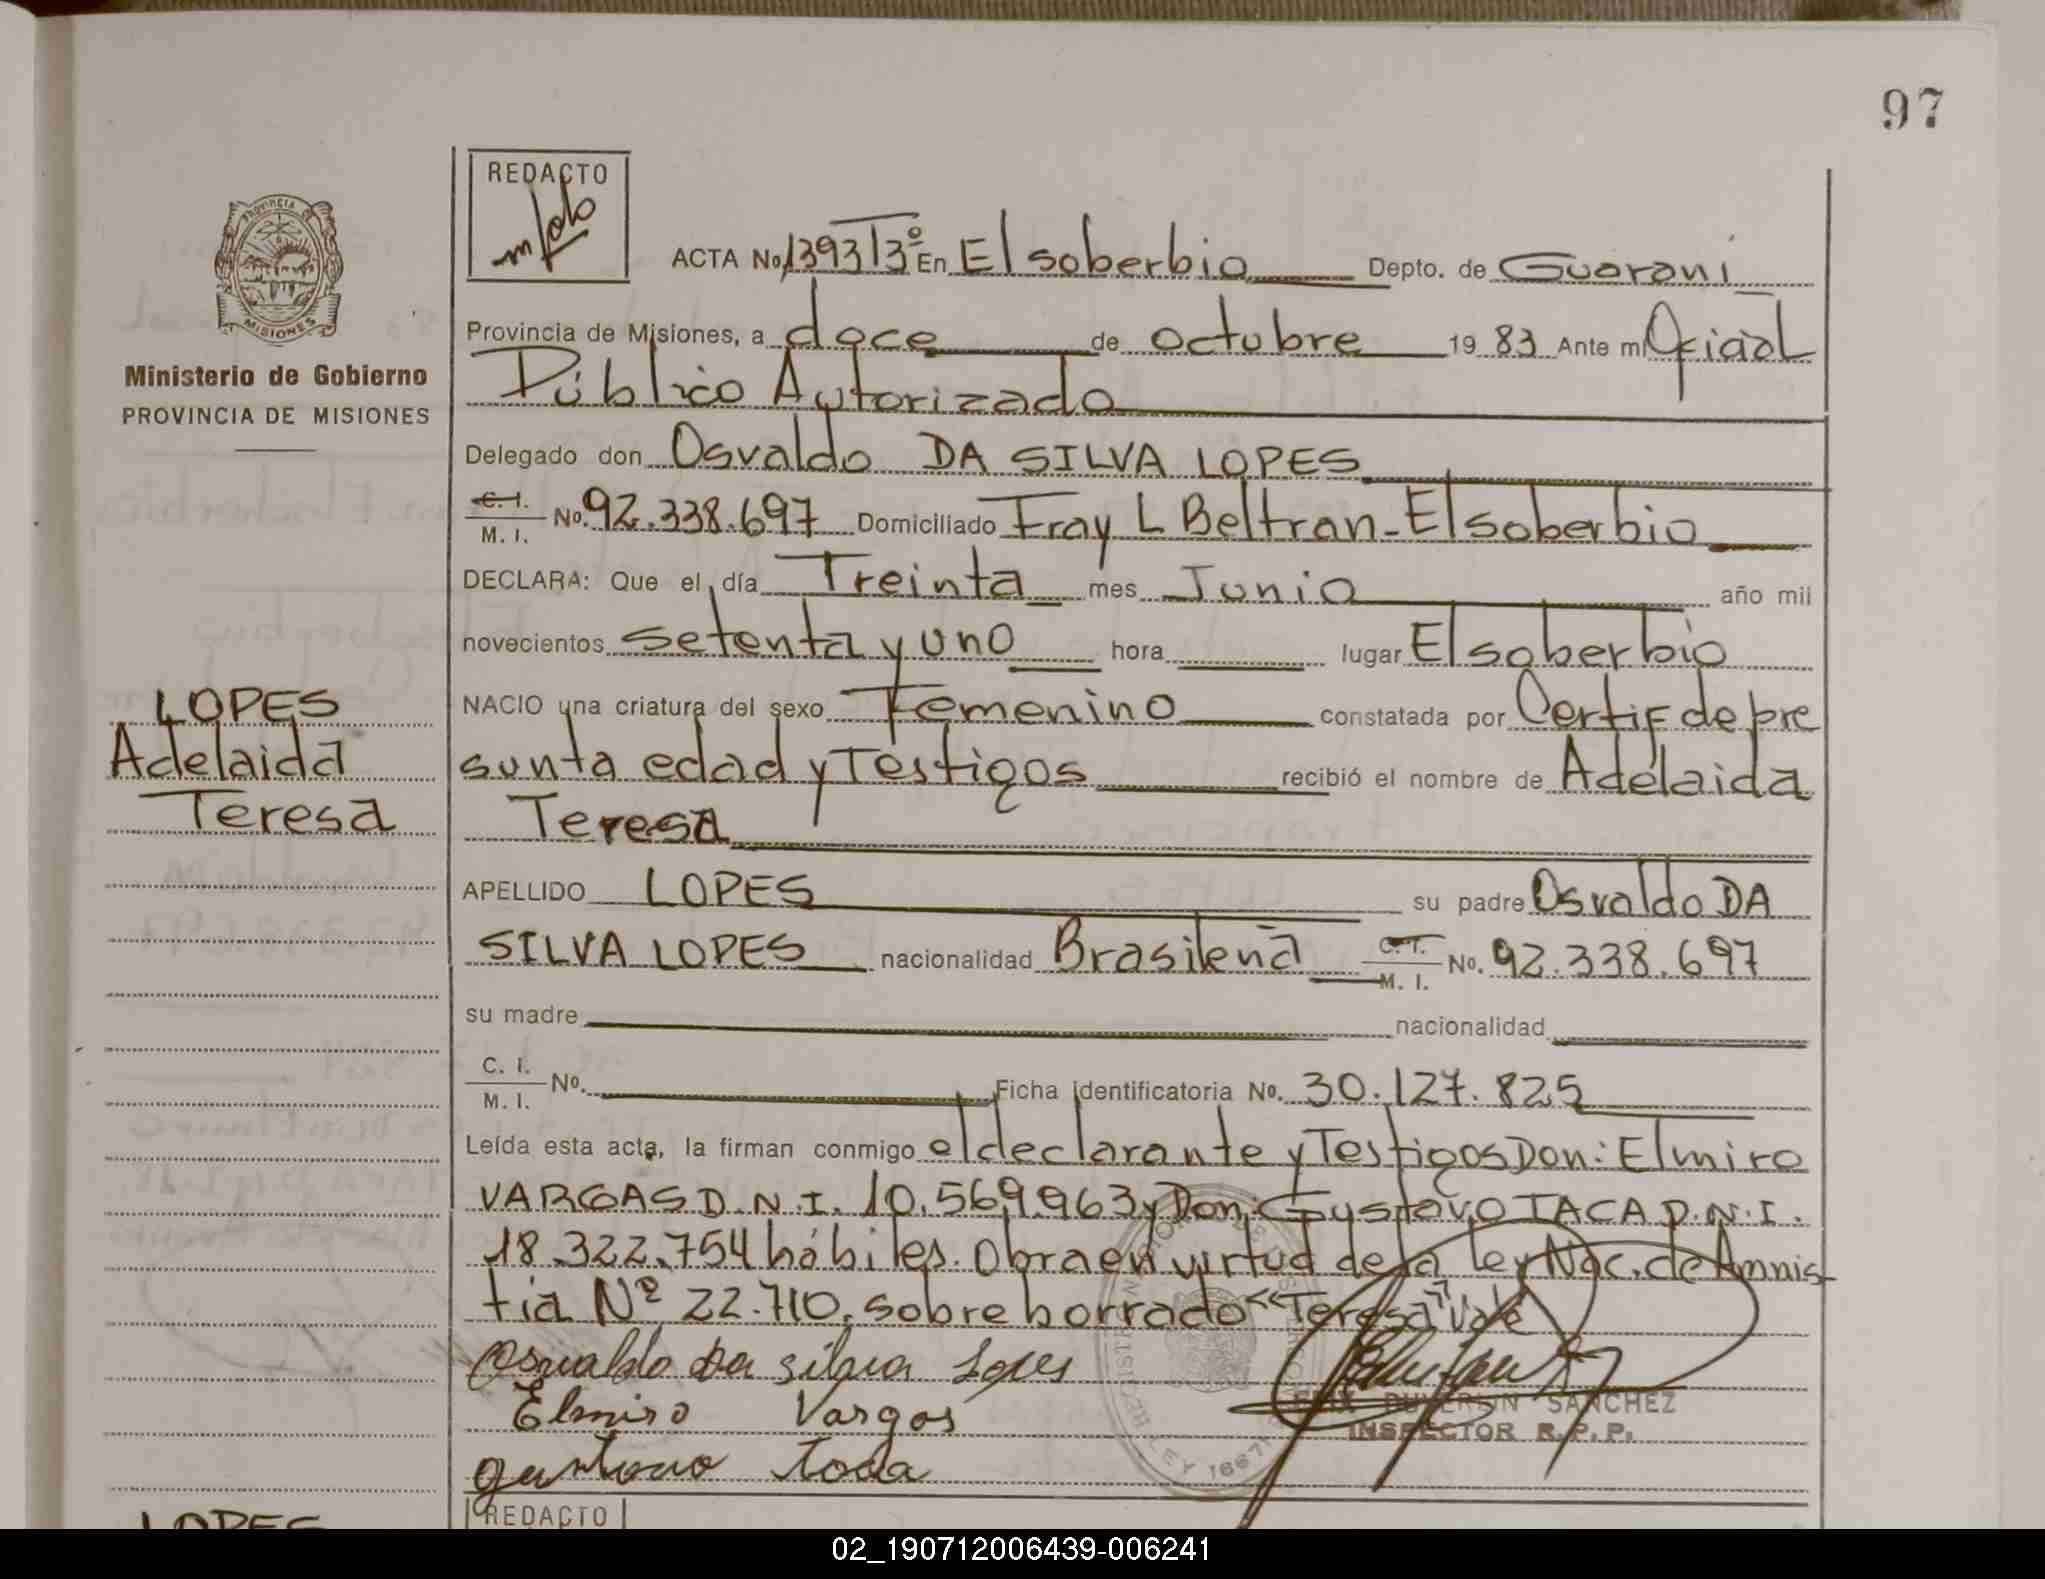 97
REDACTO
ACTA No. 1393 T3º En El soberbio Depto. de Guaraní
Provincia de Misiones, a doce de octubre 19 83 Ante mi Oficial
Público Autorizado
Delegado don Osvaldo DA SILVA LOPES
C. I.
M. I. No. 92.338.697 Domiciliado Fray L Beltran - El soberbio
DECLARA: Que el día Treinta mes Junio año mil
novecientos setenta y uno hora lugar El soberbio
NACIO una criatura del sexo Femenino constatada por Certif de pre
sunta edad y Testigos recibió el nombre de Adelaida
Teresa
APELLIDO LOPES su padre Osvaldo DA
SILVA LOPES nacionalidad Brasileña C. I.
M. I. No. 92.338.697
su madre nacionalidad
C. I.
M. I. No. Ficha identificatoria No. 30.127.825
Leída esta acta, la firman conmigo el declarante y Testigos Don: Elmiro
VARGAS D.N.I. 10.569.963 y Don: Gustavo TACA D.N.I.
18.322.754 hábiles. Obra en virtud de la ley Nac. de Amnis-
tia Nº 22.710, sobre borrado "Teresa" Vale
Osvaldo Da Silva Lopes
Elmiro Vargas
SANCHEZ
INSPECTOR R.P.P.
REDACTO
PROVINCIA DE
MISIONES
Ministerio de Gobierno
PROVINCIA DE MISIONES
LOPES
Adelaida
Teresa
LOPES
02_190712006439-006241